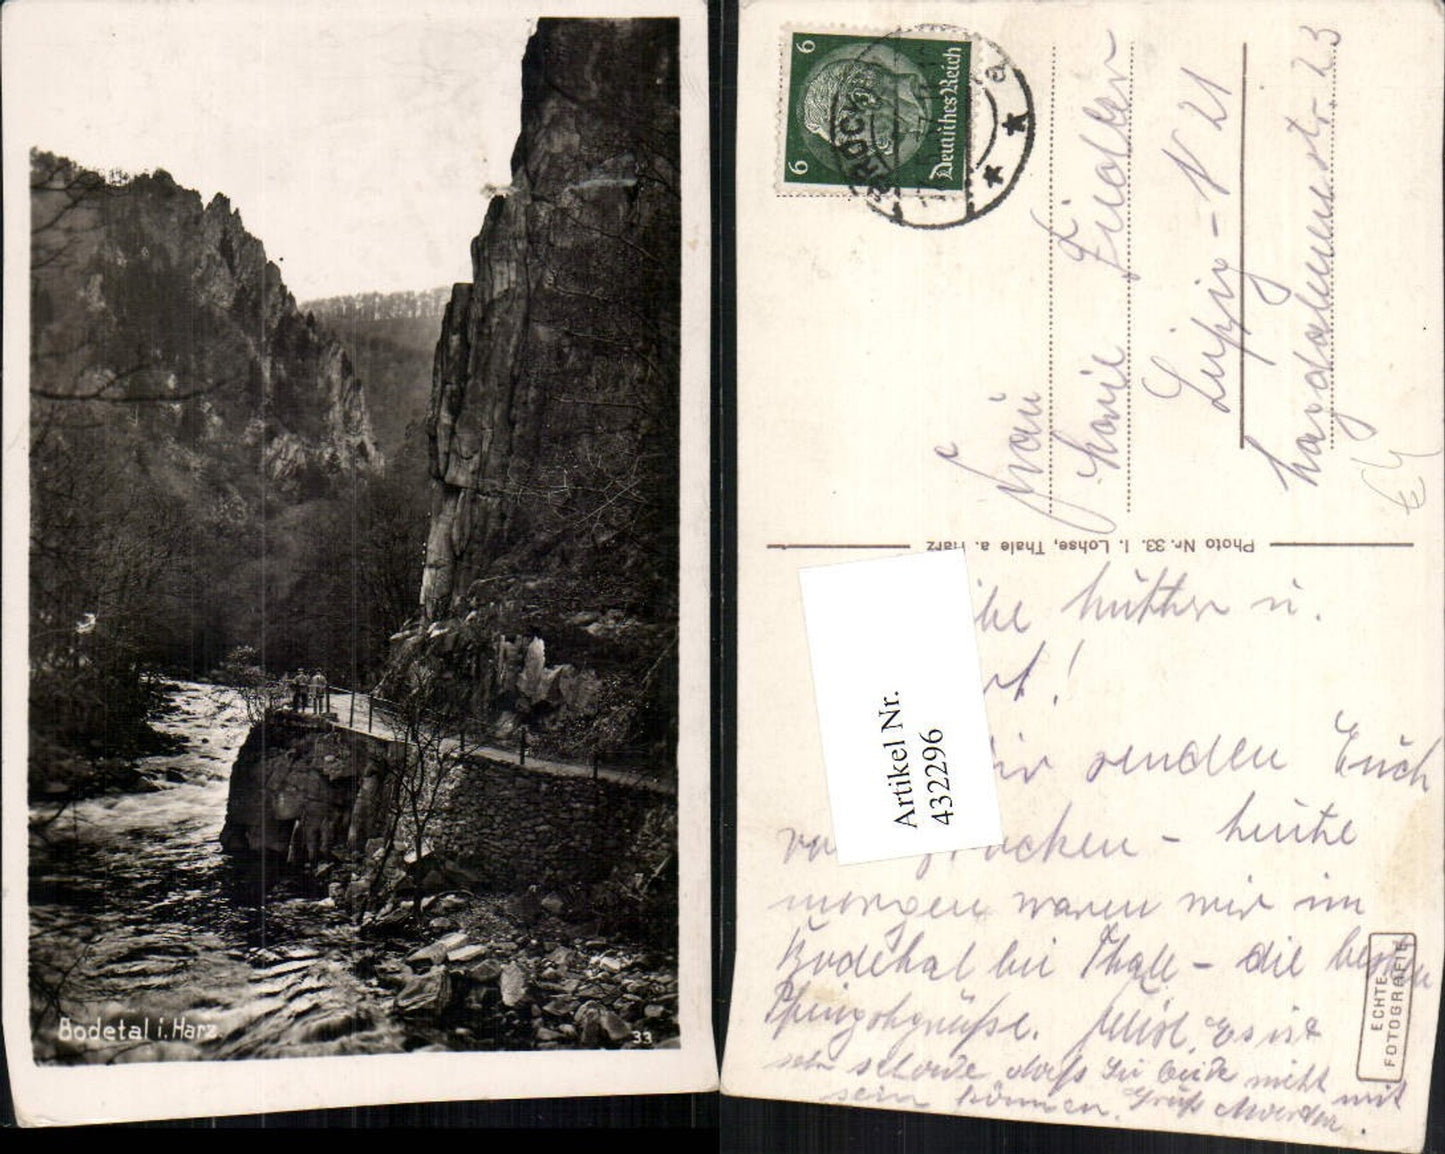 Bodetal i. Harz
33
6
6
Deutsches Reich
a
Frau
Fiedler
Leipzig - N 21
23
Photo Nr. 33. I. Lohse, Thale a. Harz
Artikel Nr.
432296
Mutter u.
senden Euch
- heute
morgen waren wir im
Bodethal bei Thale - die besten
Pfingstgrüße. Es ist
sehr schade daß Sie beide nicht mit
sein können. Gruß
ECHTE
FOTOGRAFIE